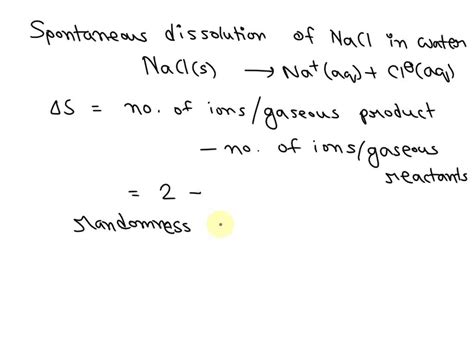 Spontaneous dissolution of NaCl in water
NaCl(s) ⟶ Na⁺(aq) + Cl⊖(aq)
ΔS = no. of ions/gaseous product
- no. of ions/gaseous
reactants
= 2 -
Randomness